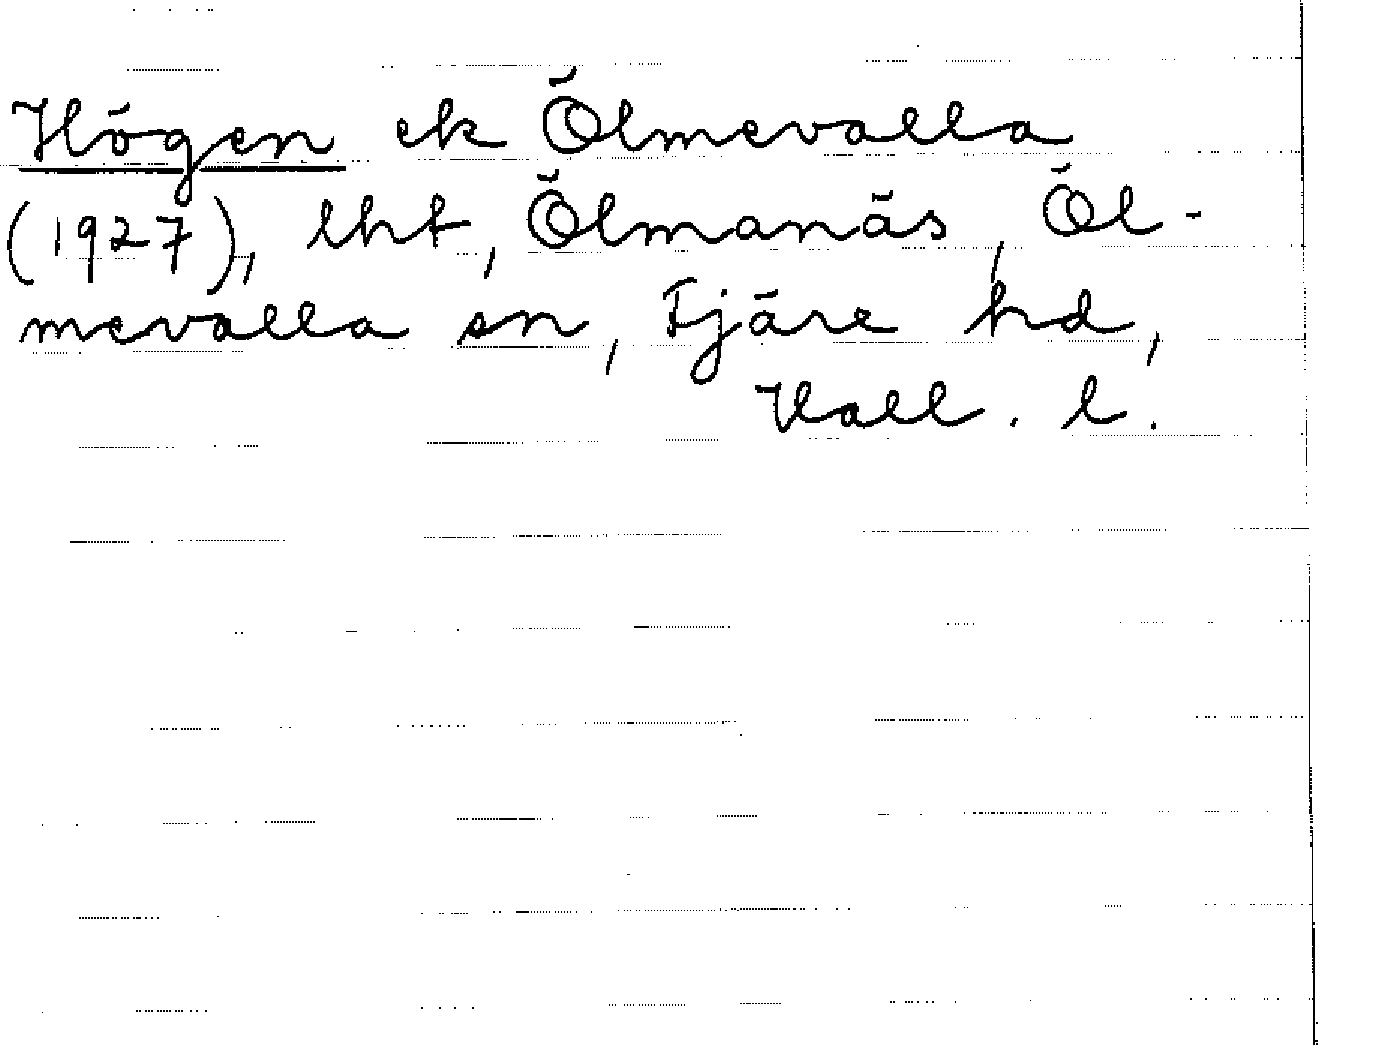 Högen ek Ölmevalla
(1927), lht, Ölmanäs, Öl-
mevalla sn, Fjäre hd,
Hall. l.